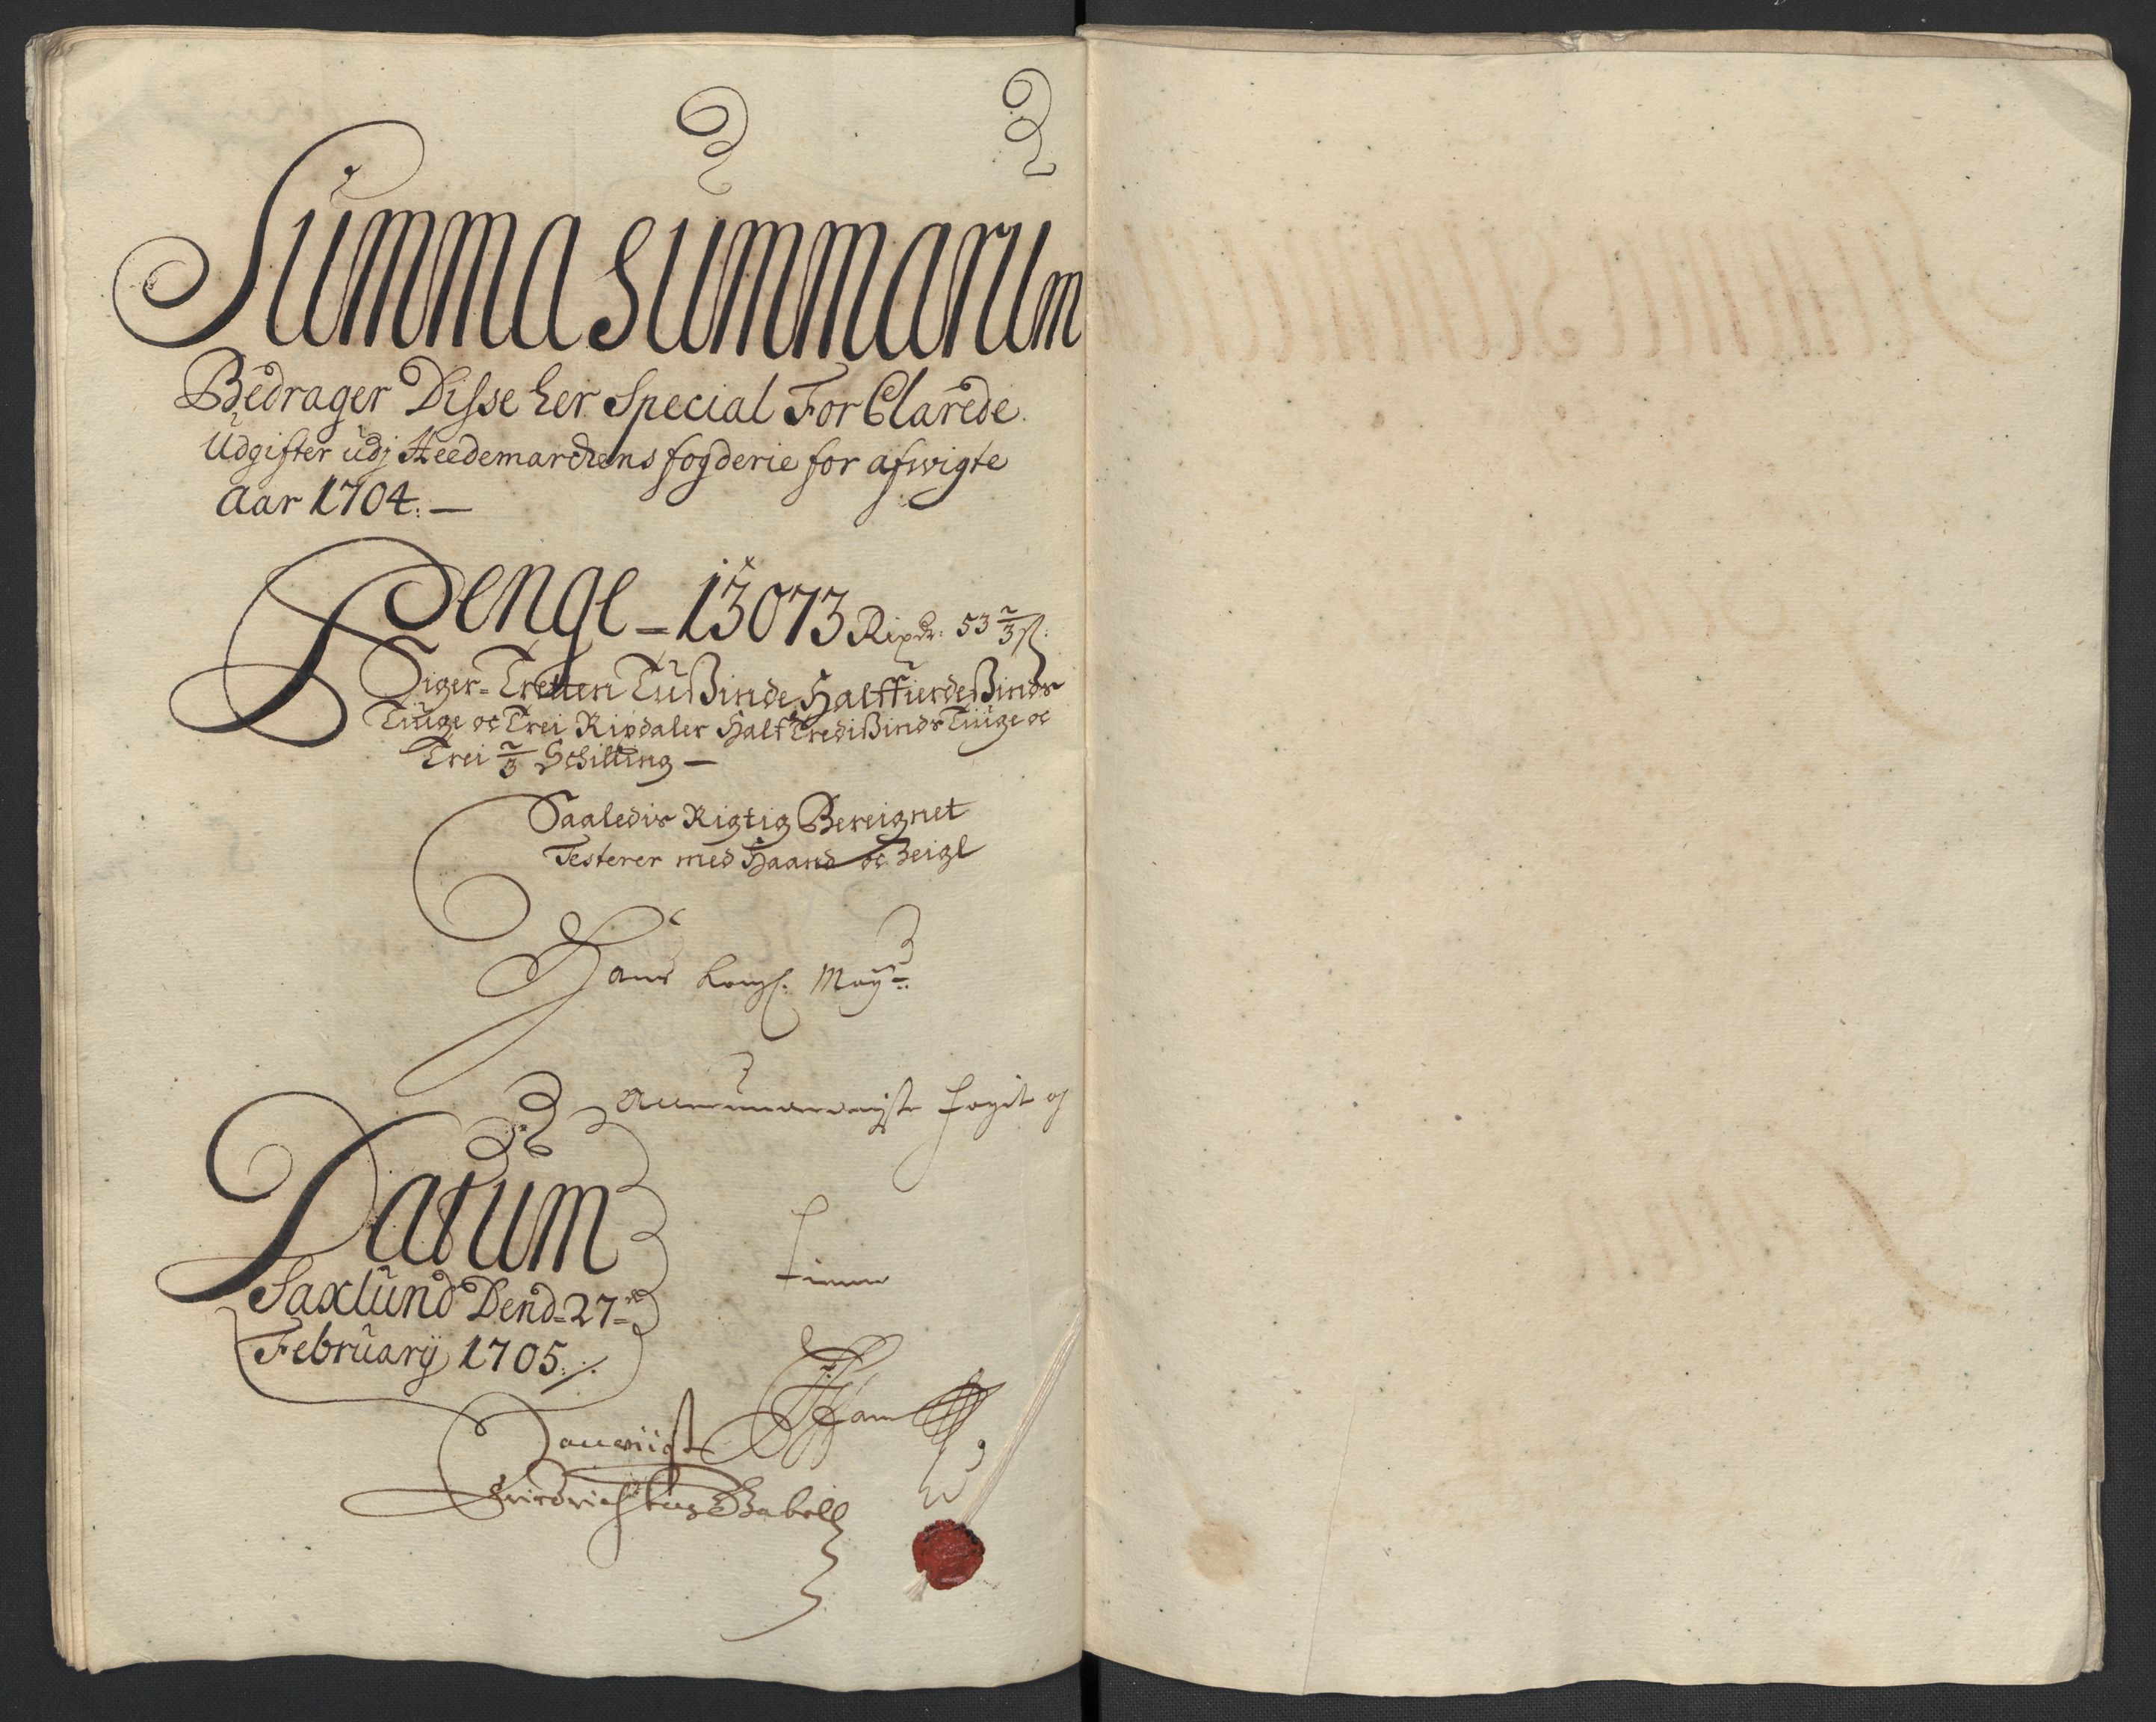 Summa Summarum
Bedrager Disse her Special ForClarede
Udgifter udj Heedemarckens fogderie for afwigte
Aar 1704. —
Penge - 13073 Rixdr. 53 2/3 ß.
Siger - Tretten Tußinde Halffierdeßinds
Tiuge oc Trei Rixdaler HalfTredißinds Tiuge oc
Trei 2/3 Schilling —
Saaledis Rigtig Bereignet
Testerer med Haand oc Zeigl
Hans Kongl. May.
Allerunderdanigste fogit og
tiener
Datum
Saxlund Dend - 27 -
February 1705 ./.
Friderich Gabell